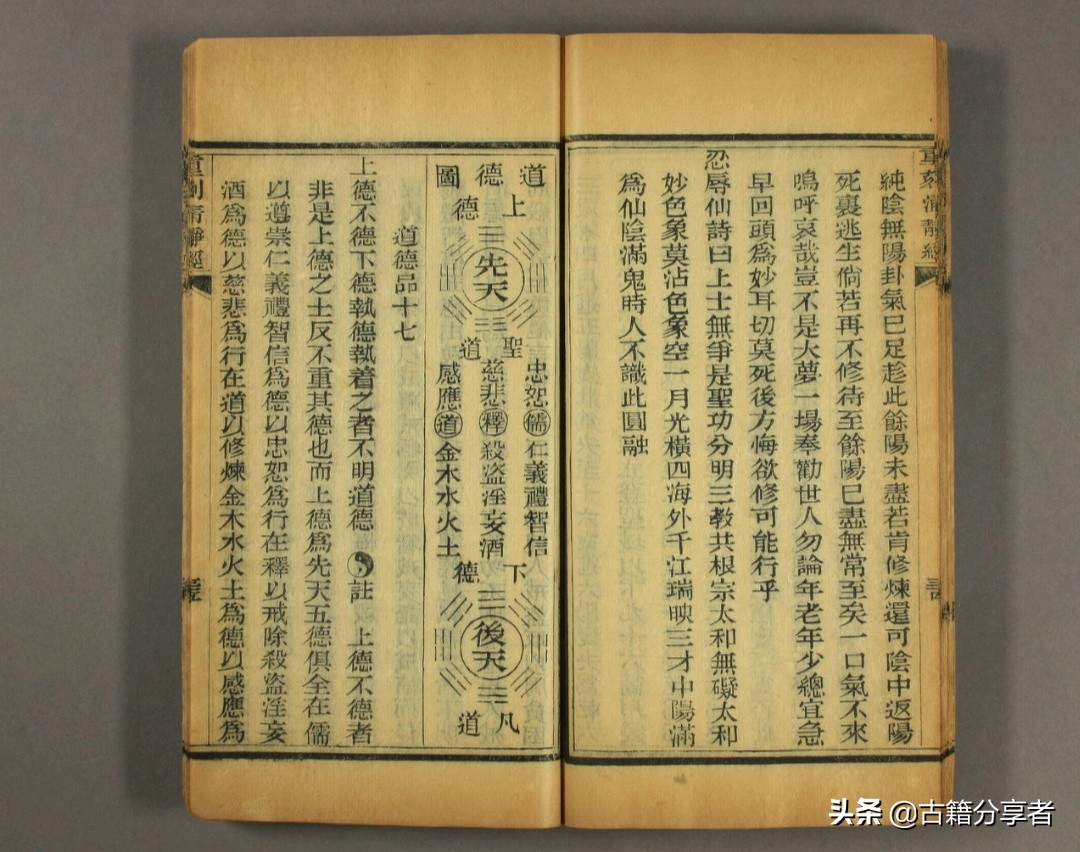 重刻清靜經
純陰無陽卦氣已足趁此餘陽未盡若肯修煉還可陰中返陽
死裏逃生倘若再不修待至餘陽已盡無常至矣一口氣不來
嗚呼哀哉豈不是大夢一場奉勸世人勿論年老年少總宜急
早回頭爲妙耳切莫死後方悔欲修可能行乎
忍辱仙詩曰上士無爭是聖功分明三教共根宗太和無礙太和
妙色象莫沾色象空一月光橫四海外千江瑞映三才中陽滿
爲仙陰滿鬼時人不識此圓融
道德圖
上德
先天
聖道
忠恕儒仁義禮智信
慈悲釋殺盜淫妄酒
感應道金木水火土
下德
後天
凡道
道德品十七
上德不德下德執德執着之者不明道德 註 上德不德者
非是上德之士反不重其德也而上德爲先天五德俱全在儒
以遵崇仁義禮智信爲德以忠恕爲行在釋以戒除殺盜淫妄
酒爲德以慈悲爲行在道以修煉金木水火土爲德以感應爲
重刻清靜經
头条 @古籍分享者